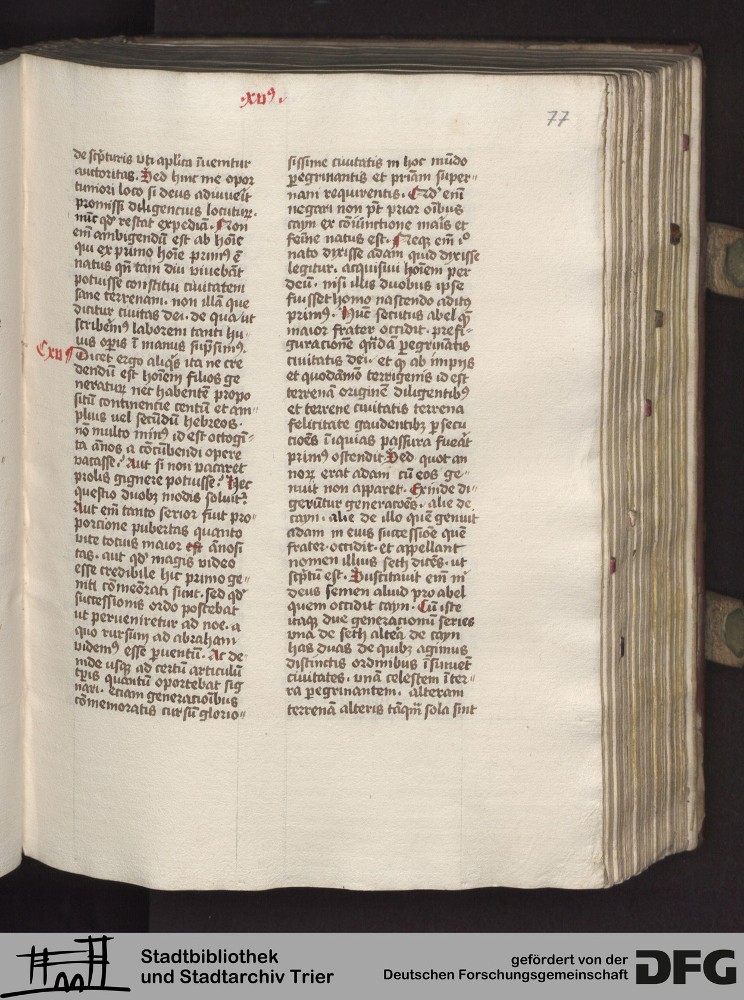 .xv⁹.
77
de sc̄pturis v̄ti ap̄lica īuenitur
auctoritas. Sed hinc me opor
tuniori loco si deus adiuuēit
promisi diligencius locuturꝰ.
nūc qd̓ restat expediā. Non
em̄ ambigendū est ab hoīe
qui ex primo hoīe primꝰ ē
natus qn̄ tam diu viuebāt
potuisse constitui ciuitatem
sane terrenam. non illā que
dicitur ciuitas dei. de qua ut
scribēmꝰ laborem tanti hu-
ius opīs ī manus sūpsimꝰ.
C xv Dicet ergo aliqs̓ ita ne cre
dendū est hoīem filios ge
neraturꝰ nec habentē propo
sitū continencie centū et am=
plius uel secūdū hebreos.
nō multo minꝰ id est octogī=
ta ānos a cōcūbendi opere
vacasse. Aut si non vacaret
prolis gignere potuisse. Hec
questio duobꝫ modis soluit̄.
Aut em̄ tanto serior fuit pro=
porcione pubertas quanto
vite totius maior est ānosi
tas. aut qd̓ magis video
esse credibile hic primo ge=
niti cōmēorati sunt. sed qd̓
successionis ordo poscebat
ut perueniretur ad noe. a
quo rursum ad abraham
videmꝰ esse ꝑuentū. Ac de=
inde usqꝫ ad certū articulū
tp̄is quantū oportebat sig
nari. eciam generacionibus
cōmemoratis cursū glorio=
sissime ciuitatis in hoc mūdo
ꝑegrinantis et pr̄iam super=
nam requirentis. Qd̓ em̄
negari non pt̄ prior oībus
cayn ex cōiūnctione maīs et
feīne natus est. Neqꝫ em̄ i°
nato dyxisse adam quid dyxisse
legitur. acquisiui hoīem per
deū. nisi illis duobus ipse
fuisset homo nascendo additꝰ
primꝰ. Hūc secutus abel qm̄
maior frater occidit. prefi=
guracionē qn̄dā ꝑegrinātis
ciuitatis dei. et qd̓ ab impijs
et quodāmo terrigenis id est
terrenā originē diligentibꝰ
et terrene ciuitatis terrena
felicitate gaudentibꝫ ꝑsecu
cioēs īiquas passura fuēāt
primꝰ ostendit Sed quot an
norꝫ erat adam cū eos ge=
nuit non apparet. Exinde di=
gerūtur generacōes. alie de
cayn. alie de illo quē genuit
adam in eius successiōe quē
frater occidit. et appellant
nomen illius seth dicēs. ut
sc̄ptū est. Suscitauit em̄ m̄
deus semen aliud pro abel
quem occidit cayn. Cū iste
itaqꝫ due generacionū series
vna de seth altēa de cayn
has duas de quibꝫ agimus
distinctis ordinibus īsinuēt
ciuitates. vnā celestem īter=
ra ꝑegrinantem. alteram
terrenā alteris tāqm̄ sola sint
Stadtbibliothek
und Stadtarchiv Trier
gefördert von der
Deutschen Forschungsgemeinschaft
DFG